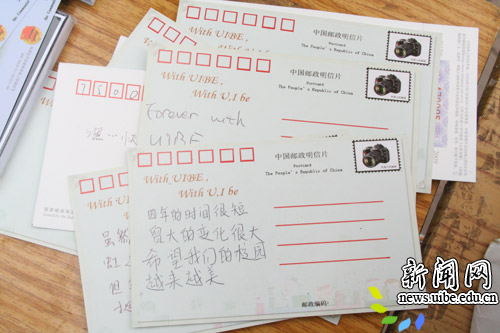 With UIBE,
中国邮政明信片
Postcard
The People's Republic of China
With UIBE,
With U,I be
中国邮政明信片
Postcard
The People's Republic of China
Forever with
UIBE
中国邮政明信片
Postcard
The People's Republic of China
With UIBE,
With U,I be
四年的时间很短
贸大的变化很大
希望我们的校园
越来越美
邮政编码:
With UIBE,
With
虽然
新闻网
news.uibe.edu.cn